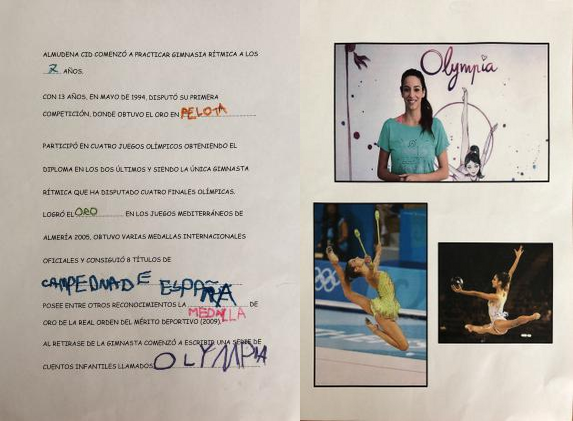 ALMUDENA CID COMENZÓ A PRACTICAR GIMNASIA RÍTMICA A LOS
7 AÑOS.
CON 13 AÑOS, EN MAYO DE 1994, DISPUTÓ SU PRIMERA
COMPETICIÓN, DONDE OBTUVO EL ORO EN PELOTA
PARTICIPÓ EN CUATRO JUEGOS OLÍMPICOS OBTENIENDO EL
DIPLOMA EN LOS DOS ÚLTIMOS Y SIENDO LA ÚNICA GIMNASTA
RÍTMICA QUE HA DISPUTADO CUATRO FINALES OLÍMPICAS.
LOGRÓ EL ORO EN LOS JUEGOS MEDITERRÁNEOS DE
ALMERÍA 2005, OBTUVO VARIAS MEDALLAS INTERNACIONALES
OFICIALES Y CONSIGUIÓ 8 TÍTULOS DE
CAMPEONA DE ESPAÑA
POSEE ENTRE OTROS RECONOCIMIENTOS LA MEDALLA DE
ORO DE LA REAL ORDEN DEL MÉRITO DEPORTIVO (2009).
AL RETIRASE DE LA GIMNASTA COMENZÓ A ESCRIBIR UNA SERIE DE
CUENTOS INFANTILES LLAMADOS OLYMPIA
Olympia